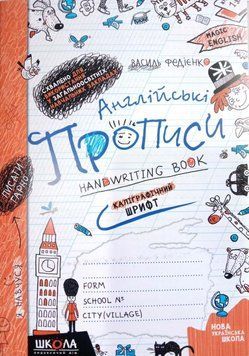 MAGIC ENGLISH
СХВАЛЕНО ДЛЯ
ВИКОРИСТАННЯ
У ЗАГАЛЬНООСВІТНІХ
НАВЧАЛЬНИХ ЗАКЛАДАХ
ВАСИЛЬ ФЕДІЄНКО
Англійські
ПРОПИСИ
HANDWRITING BOOK
КАЛІГРАФІЧНИЙ
ШРИФТ
ПИСАТИ
ГАРНО
Я НАВЧУСЯ
FORM
SCHOOL №
CITY(VILLAGE)
ШКОЛА
НОВА
УКРАЇНСЬКА
ШКОЛА